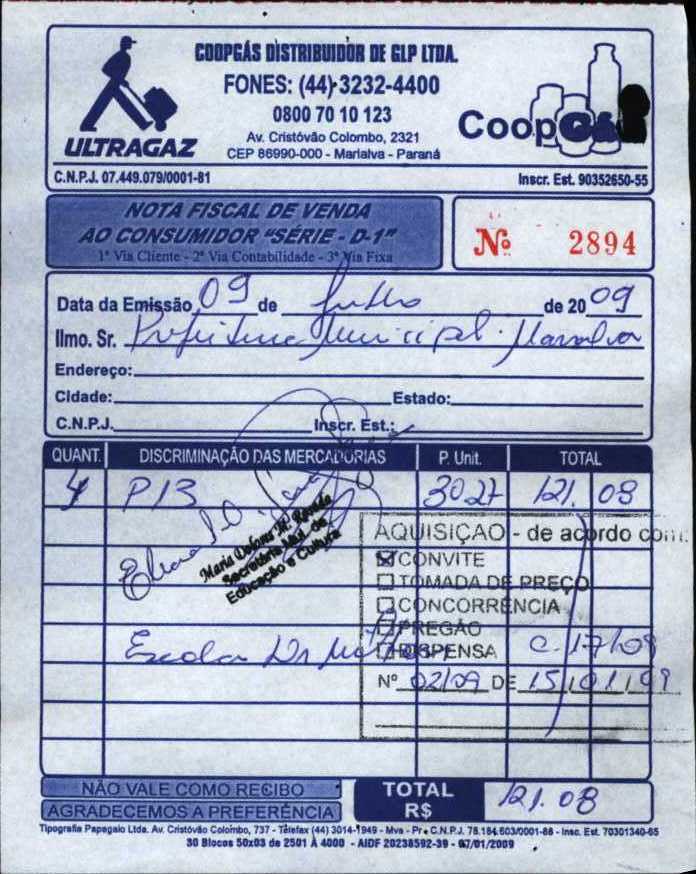 COOPGÁS DISTRIBUIDOR DE GLP LTDA.
FONES: (44) 3232-4400
0800 70 10 123
Av. Cristóvão Colombo, 2321
CEP 86990-000 - Marialva - Paraná
ULTRAGAZ
CoopGás
C.N.P.J. 07.449.079/0001-81
Inscr. Est. 90352650-55
NOTA FISCAL DE VENDA
AO CONSUMIDOR "SÉRIE - D-1"
1ª Via Cliente - 2ª Via Contabilidade - 3ª Via Fixa
Nº 2894
Data da Emissão 09 de Julho de 2009
Ilmo. Sr. Prefeitura Municipal Marialva
Endereço:
Cidade: Estado:
C.N.P.J. Inscr. Est.:
QUANT. DISCRIMINAÇÃO DAS MERCADORIAS P. Unit. TOTAL
4 P13 30.27 121.08
Secretária Mul. de
Educação e Cultura
AQUISIÇÃO - de acordo com:
CONVITE
TOMADA DE PREÇO
CONCORRÊNCIA
PREGÃO
DISPENSA C. 17/09
Nº 02/09 DE 15/01/09
Escola
NÃO VALE COMO RECIBO
AGRADECEMOS A PREFERÊNCIA
TOTAL
R$ 121.08
Tipografia Papagaio Ltda. Av. Cristóvão Colombo, 737 - Telefax (44) 3014-1949 - Mva - Pr - C.N.P.J. 78.184.603/0001-88 - Insc. Est. 70301340-65
30 Blocos 50x03 de 2501 À 4000 - AIDF 20238592-39 - 07/01/2009